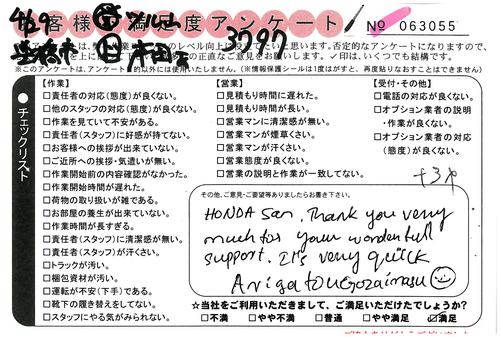 4/29
お客様満足度アンケート
3797
No 063055
※このアンケートは、アンケート目的以外には使用いたしません。(※情報保護シールは1度はがすと、再度貼りなおすことはできません)
チェックリスト
【作業】
□責任者の対応(態度)が良くない。
□他のスタッフの対応(態度)が良くない。
□作業を見ていて不安がある。
□責任者(スタッフ)に好感が持てない。
□お客様への挨拶が出来ていない。
□ご近所への挨拶・気遣いが無い。
□作業開始前の内容確認がなかった。
□作業開始時間が遅れた。
□荷物の取り扱いが雑である。
□お部屋の養生が出来ていない。
□作業時間が長すぎる。
□責任者(スタッフ)に清潔感が無い。
□責任者(スタッフ)が汗くさい。
□トラックが汚い。
□梱包資材が汚い。
□運転が不安(下手)である。
□靴下の履き替えをしてない。
□スタッフにやる気がみられない。
【営業】
□見積もり時間に遅れた。
□見積もり時間が長い。
□営業マンに清潔感が無い。
□営業マンが煙草くさい。
□営業マンが汗くさい。
□営業態度が良くない。
□営業の説明と作業が一致してない。
【受付・その他】
□電話の対応が良くない。
□オプション業者の説明
・作業が良くない。
□オプション業者の対応
(態度)が良くない。
その他、ご意見・ご要望等ありましたらお書き下さい。
HONDA San, Thank you very
much for your wonderfull
support. It's very quick
Arigatougozaimasu
☆当社をご利用いただきまして、ご満足いただけたでしょうか?
□不満 □やや不満 □普通 □やや満足 ☑満足